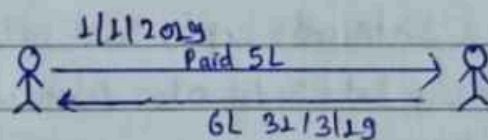 1/1/2019
Paid 5L
6L 31/3/19